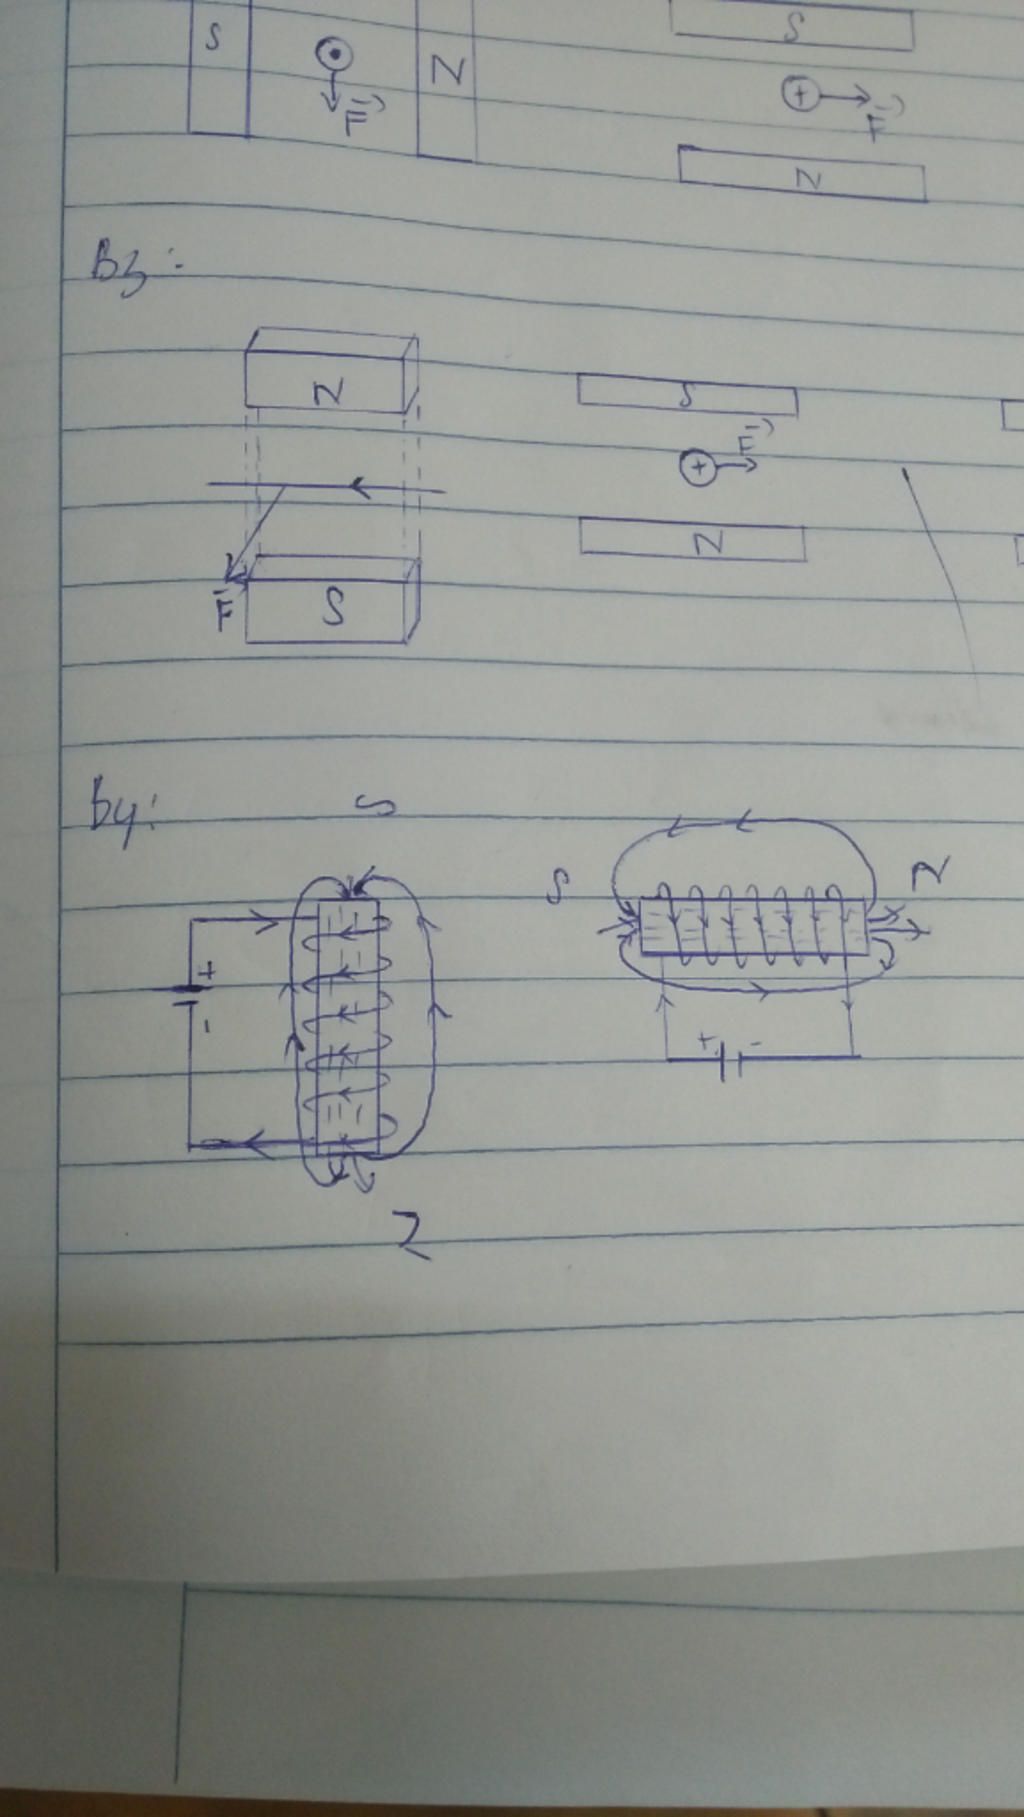 S
N
F
S
F
N
B3:
N
F
S
S
F
N
B4:
S
+
-
N
S
N
+ -